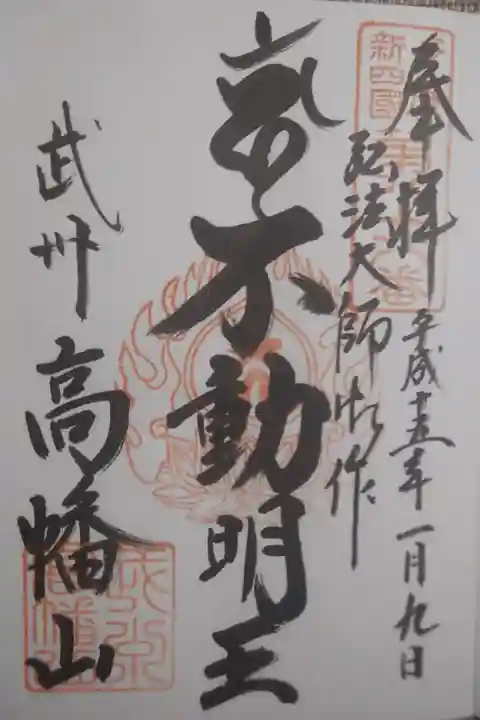 奉拝
平成十五年一月九日
弘法大師御作
不動明王
武州
高幡山
新四國